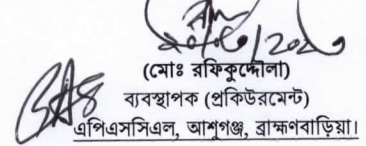 (মোঃ রফিকুদ্দৌলা)
ব্যবস্থাপক (প্রকিউরমেন্ট)
এপিএসসিএল, আশুগঞ্জ, ব্রাহ্মণবাড়িয়া।